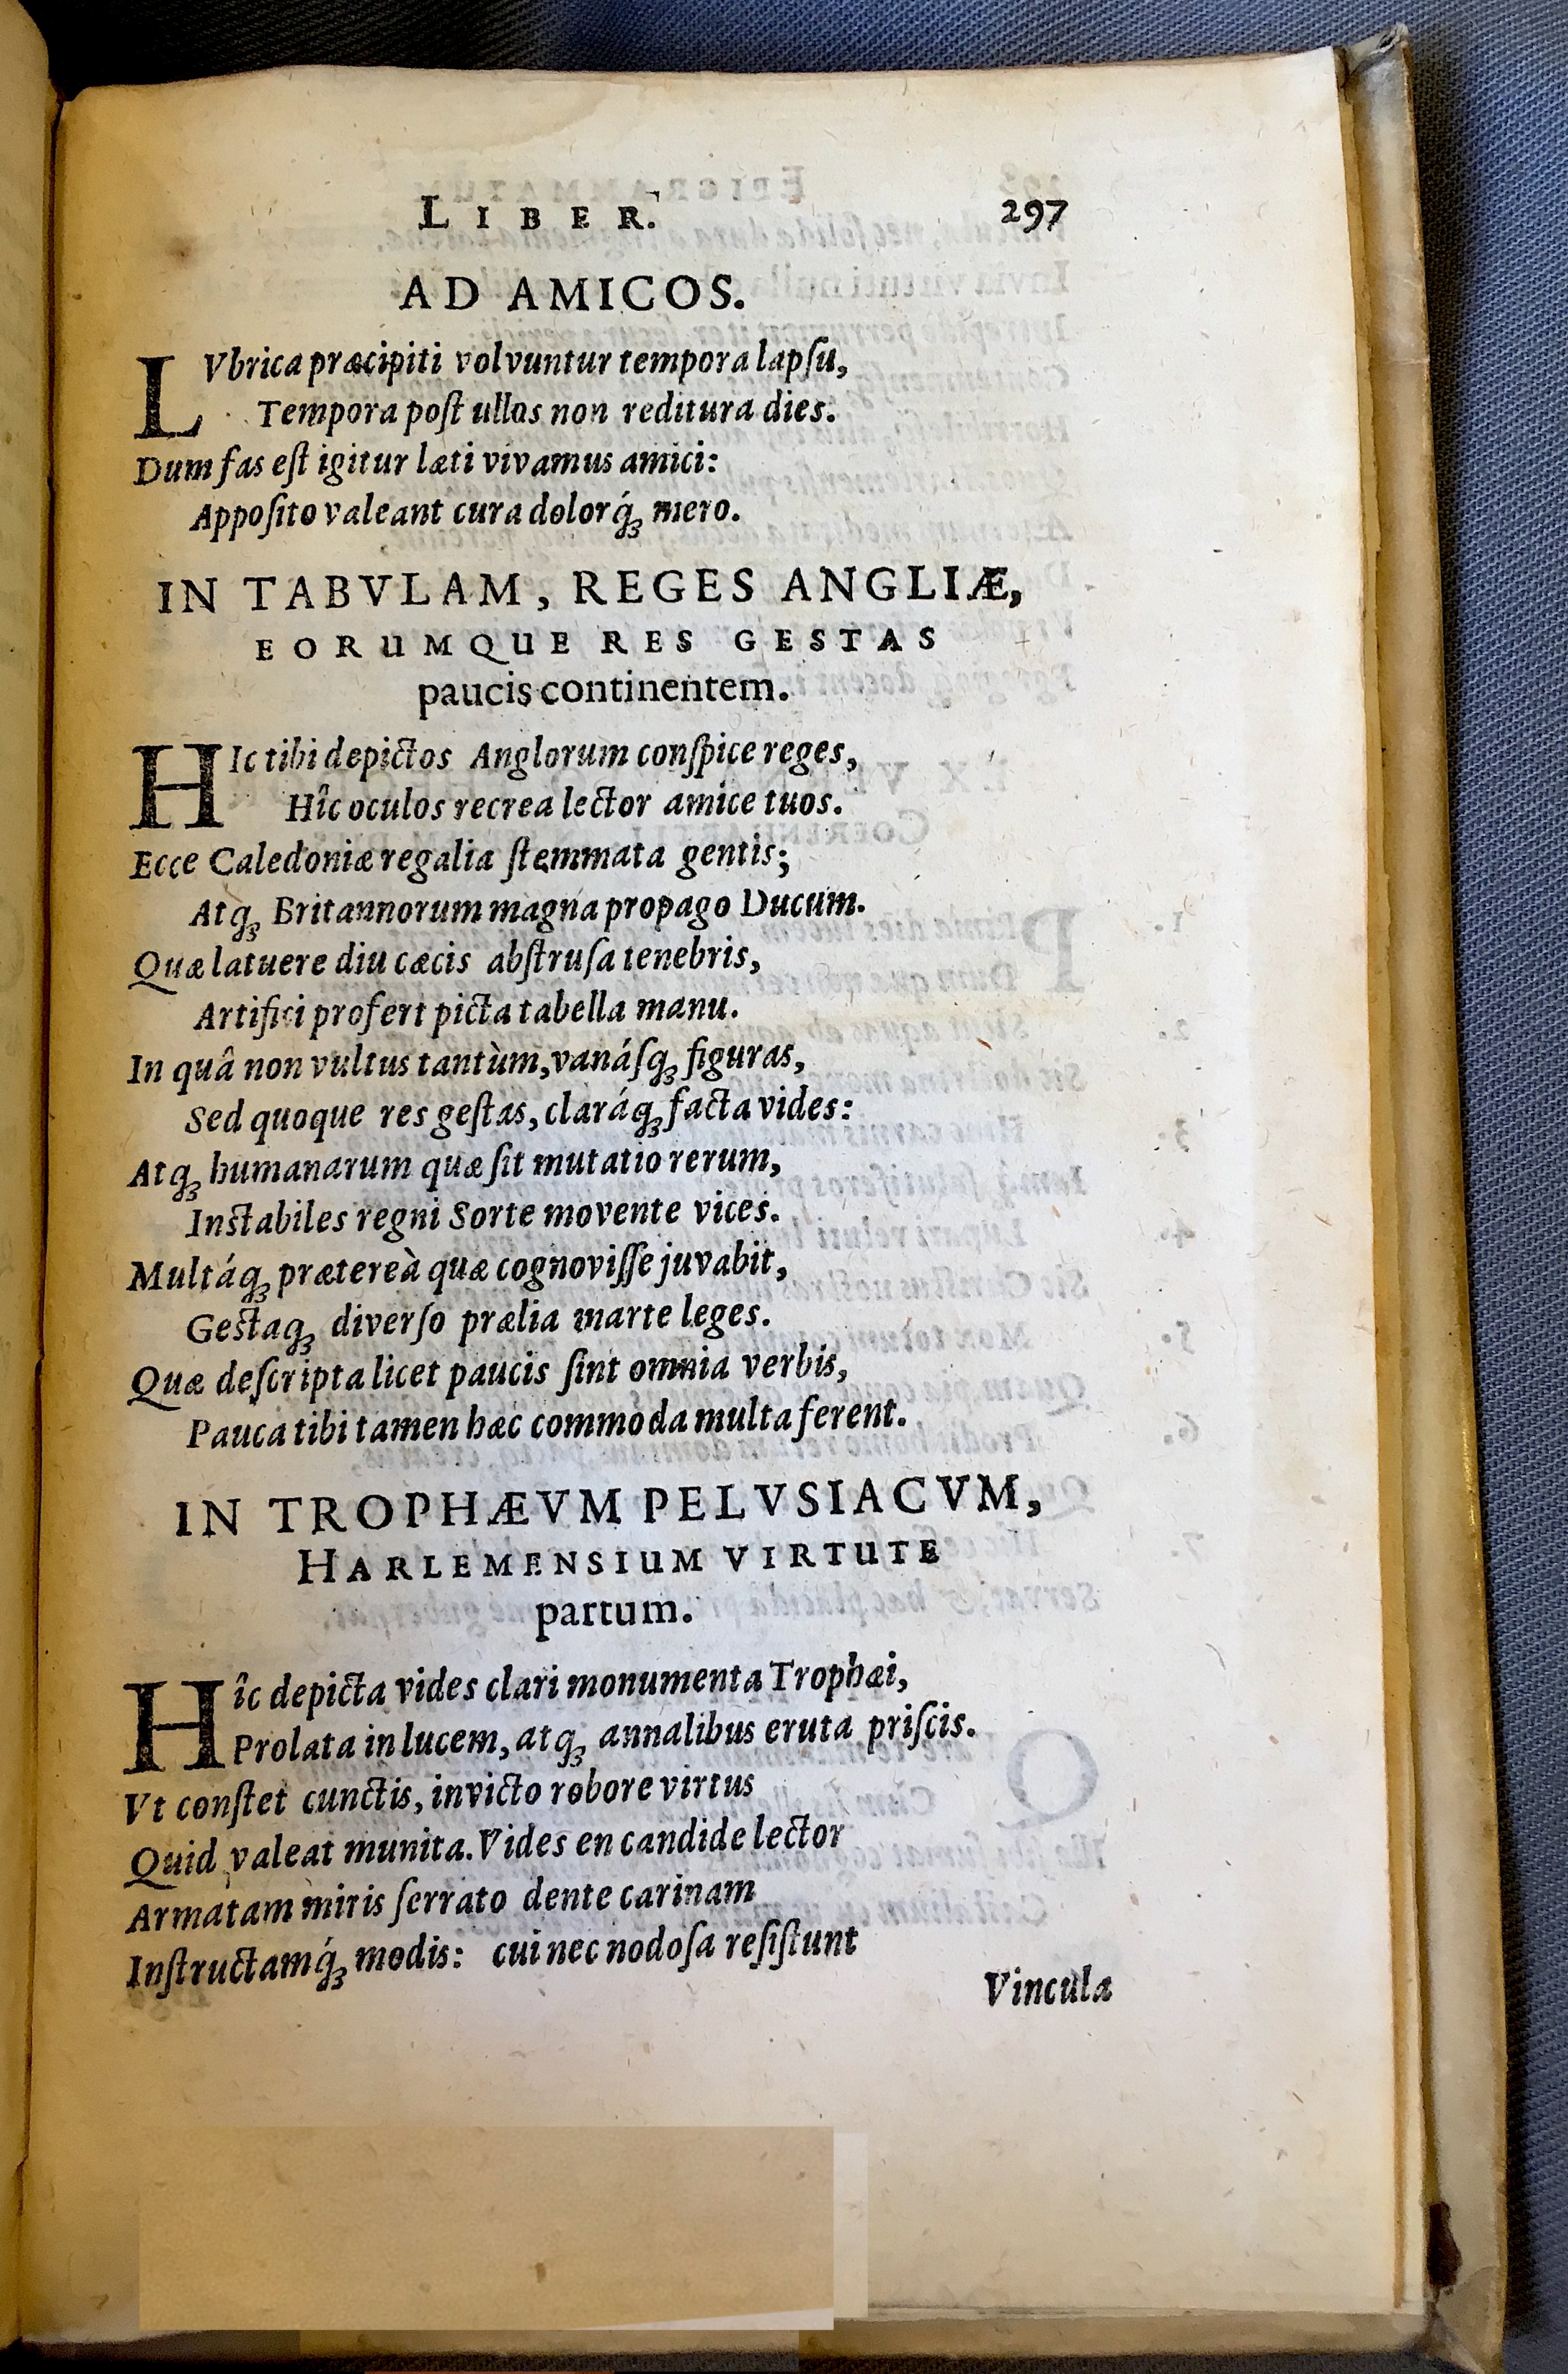 LIBER. 297
AD AMICOS.
LVbrica præcipiti volvuntur tempora lapſu,
Tempora poſt ullos non reditura dies.
Dum fas eſt igitur læti vivamus amici:
Appoſito valeant cura dolorq́ꝫ mero.
IN TABVLAM, REGES ANGLIÆ,
EORUMQUE RES GESTAS
paucis continentem.
HIc tibi depictos Anglorum conſpice reges,
Hîc oculos recrea lector amice tuos.
Ecce Caledoniæ regalia ſtemmata gentis;
Atqꝫ Britannorum magna propago Ducum.
Quæ latuere diu cæcis abſtruſa tenebris,
Artifici profert picta tabella manu.
In quâ non vultus tantùm, vanáſqꝫ figuras,
Sed quoque res geſtas, claráqꝫ facta vides:
Atqꝫ humanarum quæ ſit mutatio rerum,
Inſtabiles regni Sorte movente vices.
Multáqꝫ prætereà quæ cognoviſſe juvabit,
Geſtaqꝫ diverſo prælia marte leges.
Quæ deſcripta licet paucis ſint omnia verbis,
Pauca tibi tamen hæc commoda multa ferent.
IN TROPHÆVM PELVSIACVM,
HARLEMENSIUM VIRTUTE
partum.
Hîc depicta vides clari monumenta Trophæi,
Prolata in lucem, atqꝫ annalibus eruta priſcis.
Vt conſtet cunctis, invicto robore virtus
Quid valeat munita. Vides en candide lector
Armatam miris ſerrato dente carinam
Inſtructamq́ꝫ modis: cui nec nodoſa reſiſtunt
Vincula